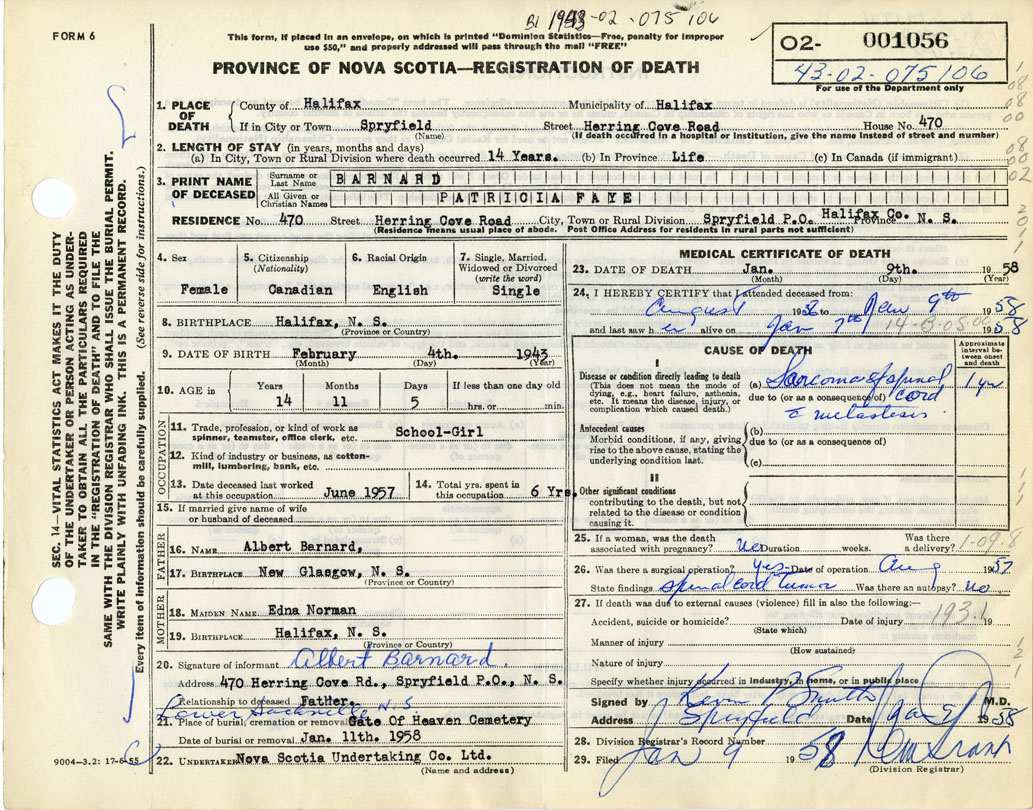 BI 1943-02-075106
FORM 6
This form, if placed in an envelope, on which is printed "Dominion Statistics—Free, penalty for improper
use $50," and properly addressed will pass through the mail "FREE"
PROVINCE OF NOVA SCOTIA—REGISTRATION OF DEATH
O2- 001056
43-02-075106
For use of the Department only
SEC. 14—VITAL STATISTICS ACT MAKES IT THE DUTY
OF THE UNDERTAKER OR PERSON ACTING AS UNDER-
TAKER TO OBTAIN ALL THE PARTICULARS REQUIRED
IN THE "REGISTRATION OF DEATH" AND TO FILE THE
SAME WITH THE DIVISION REGISTRAR WHO SHALL ISSUE THE BURIAL PERMIT.
WRITE PLAINLY WITH UNFADING INK. THIS IS A PERMANENT RECORD.
Every item of information should be carefully supplied. (See reverse side for instructions.)
1. PLACE OF DEATH County of Halifax Municipality of Halifax
If in City or Town Spryfield Street Herring Cove Road House No. 470
(Name) (If death occurred in a hospital or institution, give the name instead of street and number)
2. LENGTH OF STAY (in years, months and days)
(a) In City, Town or Rural Division where death occurred 14 Years. (b) In Province Life (c) In Canada (if immigrant)
3. PRINT NAME OF DECEASED Surname or Last Name BARNARD
All Given or Christian Names PATRICIA FAYE
RESIDENCE No. 470 Street Herring Cove Road City, Town or Rural Division Spryfield P.O. Halifax Co. Province N. S.
(Residence means usual place of abode. Post Office Address for residents in rural parts not sufficient)
4. Sex 5. Citizenship (Nationality) 6. Racial Origin 7. Single, Married, Widowed or Divorced (write the word)
Female Canadian English Single
8. BIRTHPLACE Halifax, N. S.
(Province or Country)
9. DATE OF BIRTH February 4th. 1943
(Month) (Day) (Year)
10. AGE in Years Months Days If less than one day old
14 11 5 hrs. or min.
OCCUPATION
11. Trade, profession, or kind of work as
spinner, teamster, office clerk, etc. School-Girl
12. Kind of industry or business, as cotton-
mill, lumbering, bank, etc.
13. Date deceased last worked
at this occupation June 1957
14. Total yrs. spent in
this occupation 6 Yrs.
15. If married give name of wife
or husband of deceased
FATHER
16. NAME Albert Barnard,
17. BIRTHPLACE New Glasgow, N. S.
(Province or Country)
MOTHER
18. MAIDEN NAME Edna Norman
19. BIRTHPLACE Halifax, N. S.
(Province or Country)
20. Signature of informant Albert Barnard.
Address 470 Herring Cove Rd., Spryfield P.O., N. S.
Relationship to deceased Father.
Lower Sackville N.S.
21. Place of burial, cremation or removal Gate Of Heaven Cemetery
Date of burial or removal Jan. 11th. 1958
22. UNDERTAKER Nova Scotia Undertaking Co. Ltd.
(Name and address)
9004-3.2: 17-6-55
MEDICAL CERTIFICATE OF DEATH
23. DATE OF DEATH Jan. 9th. 1958
(Month) (Day) (Year)
24. I HEREBY CERTIFY that I attended deceased from:
August 195 to Jan 9th 1958
and last saw her alive on Jan 7th 1958
CAUSE OF DEATH
Approximate interval between onset and death
I
Disease or condition directly leading to death
(This does not mean the mode of
dying, e.g., heart failure, asthenia,
etc. It means the disease, injury, or
complication which caused death.)
(a) Sarcoma of spinal 1 yr
due to (or as a consequence of) cord
c metastesis.
Antecedent causes
Morbid conditions, if any, giving
rise to the above cause, stating the
underlying condition last.
(b)
due to (or as a consequence of)
(c)
II
Other significant conditions
contributing to the death, but not
related to the disease or condition
causing it.
25. If a woman, was the death
associated with pregnancy? No Duration weeks. Was there
a delivery?
26. Was there a surgical operation? Yes Date of operation Aug 1957
State findings spinal cord tumor Was there an autopsy? No
27. If death was due to external causes (violence) fill in also the following:—
193.1
Accident, suicide or homicide? Date of injury 19
(State which)
Manner of injury
(How sustained)
Nature of injury
Specify whether injury occurred in industry, in home, or in public place
Signed by Kevin P Smith M.D.
Address Spryfield Date Jan 9 1958
28. Division Registrar's Record Number
29. Filed Jan 9 1958
(Division Registrar)